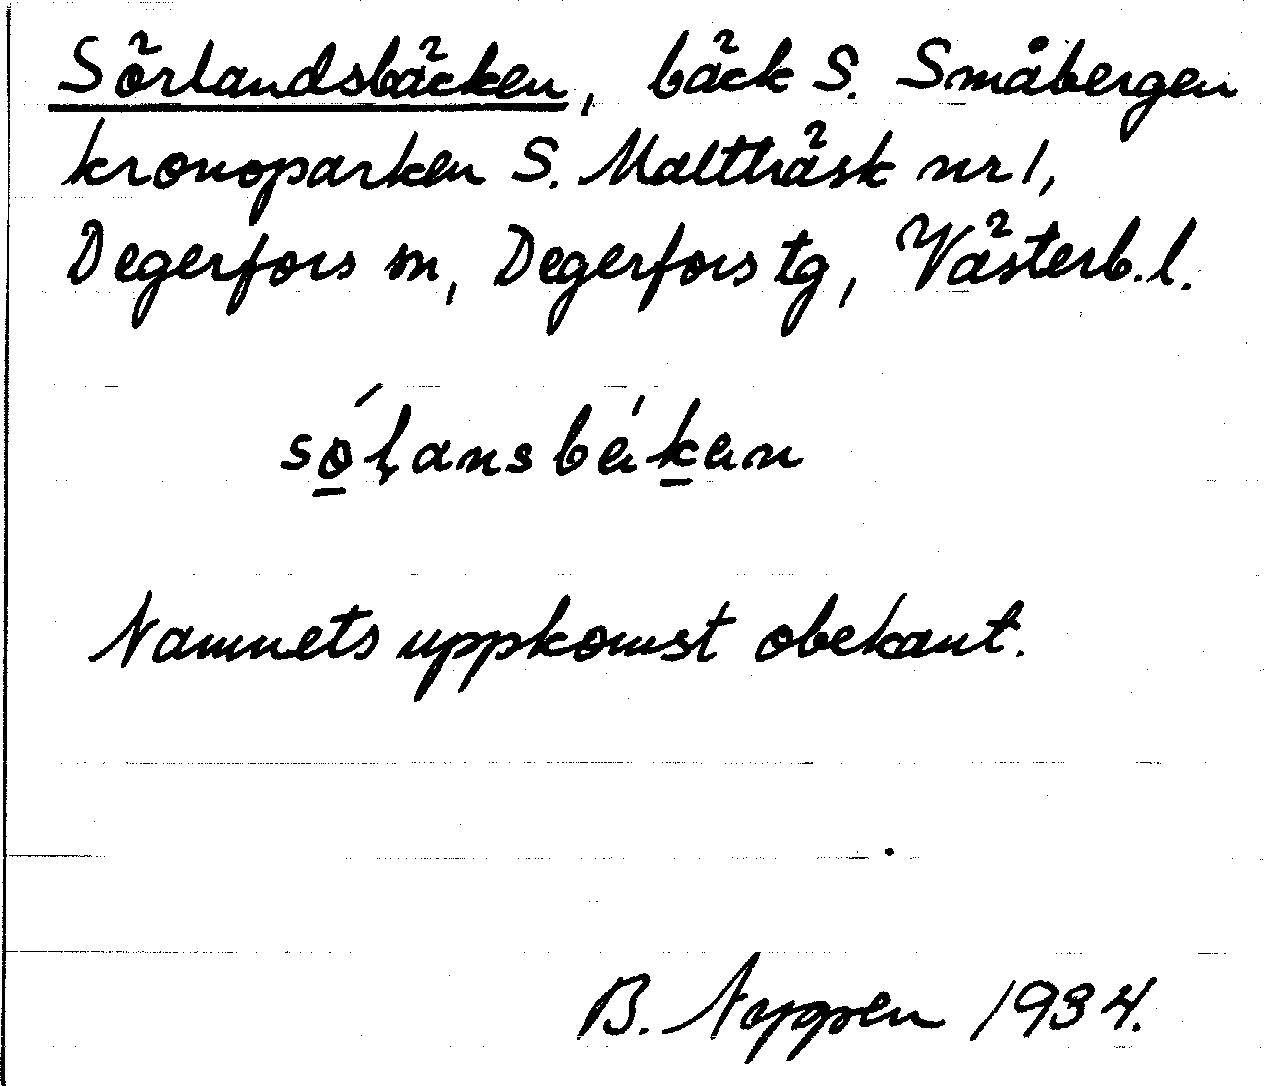 Sörlandsbäcken, bäck S. Småbergen
kronoparken S. Malträsk nr 1,
Degerfors sn, Degerfors tg, Västerb. l.
so̲´l̥ansbéi´k̲en
Namnets uppkomst obekant.
B. 1934.